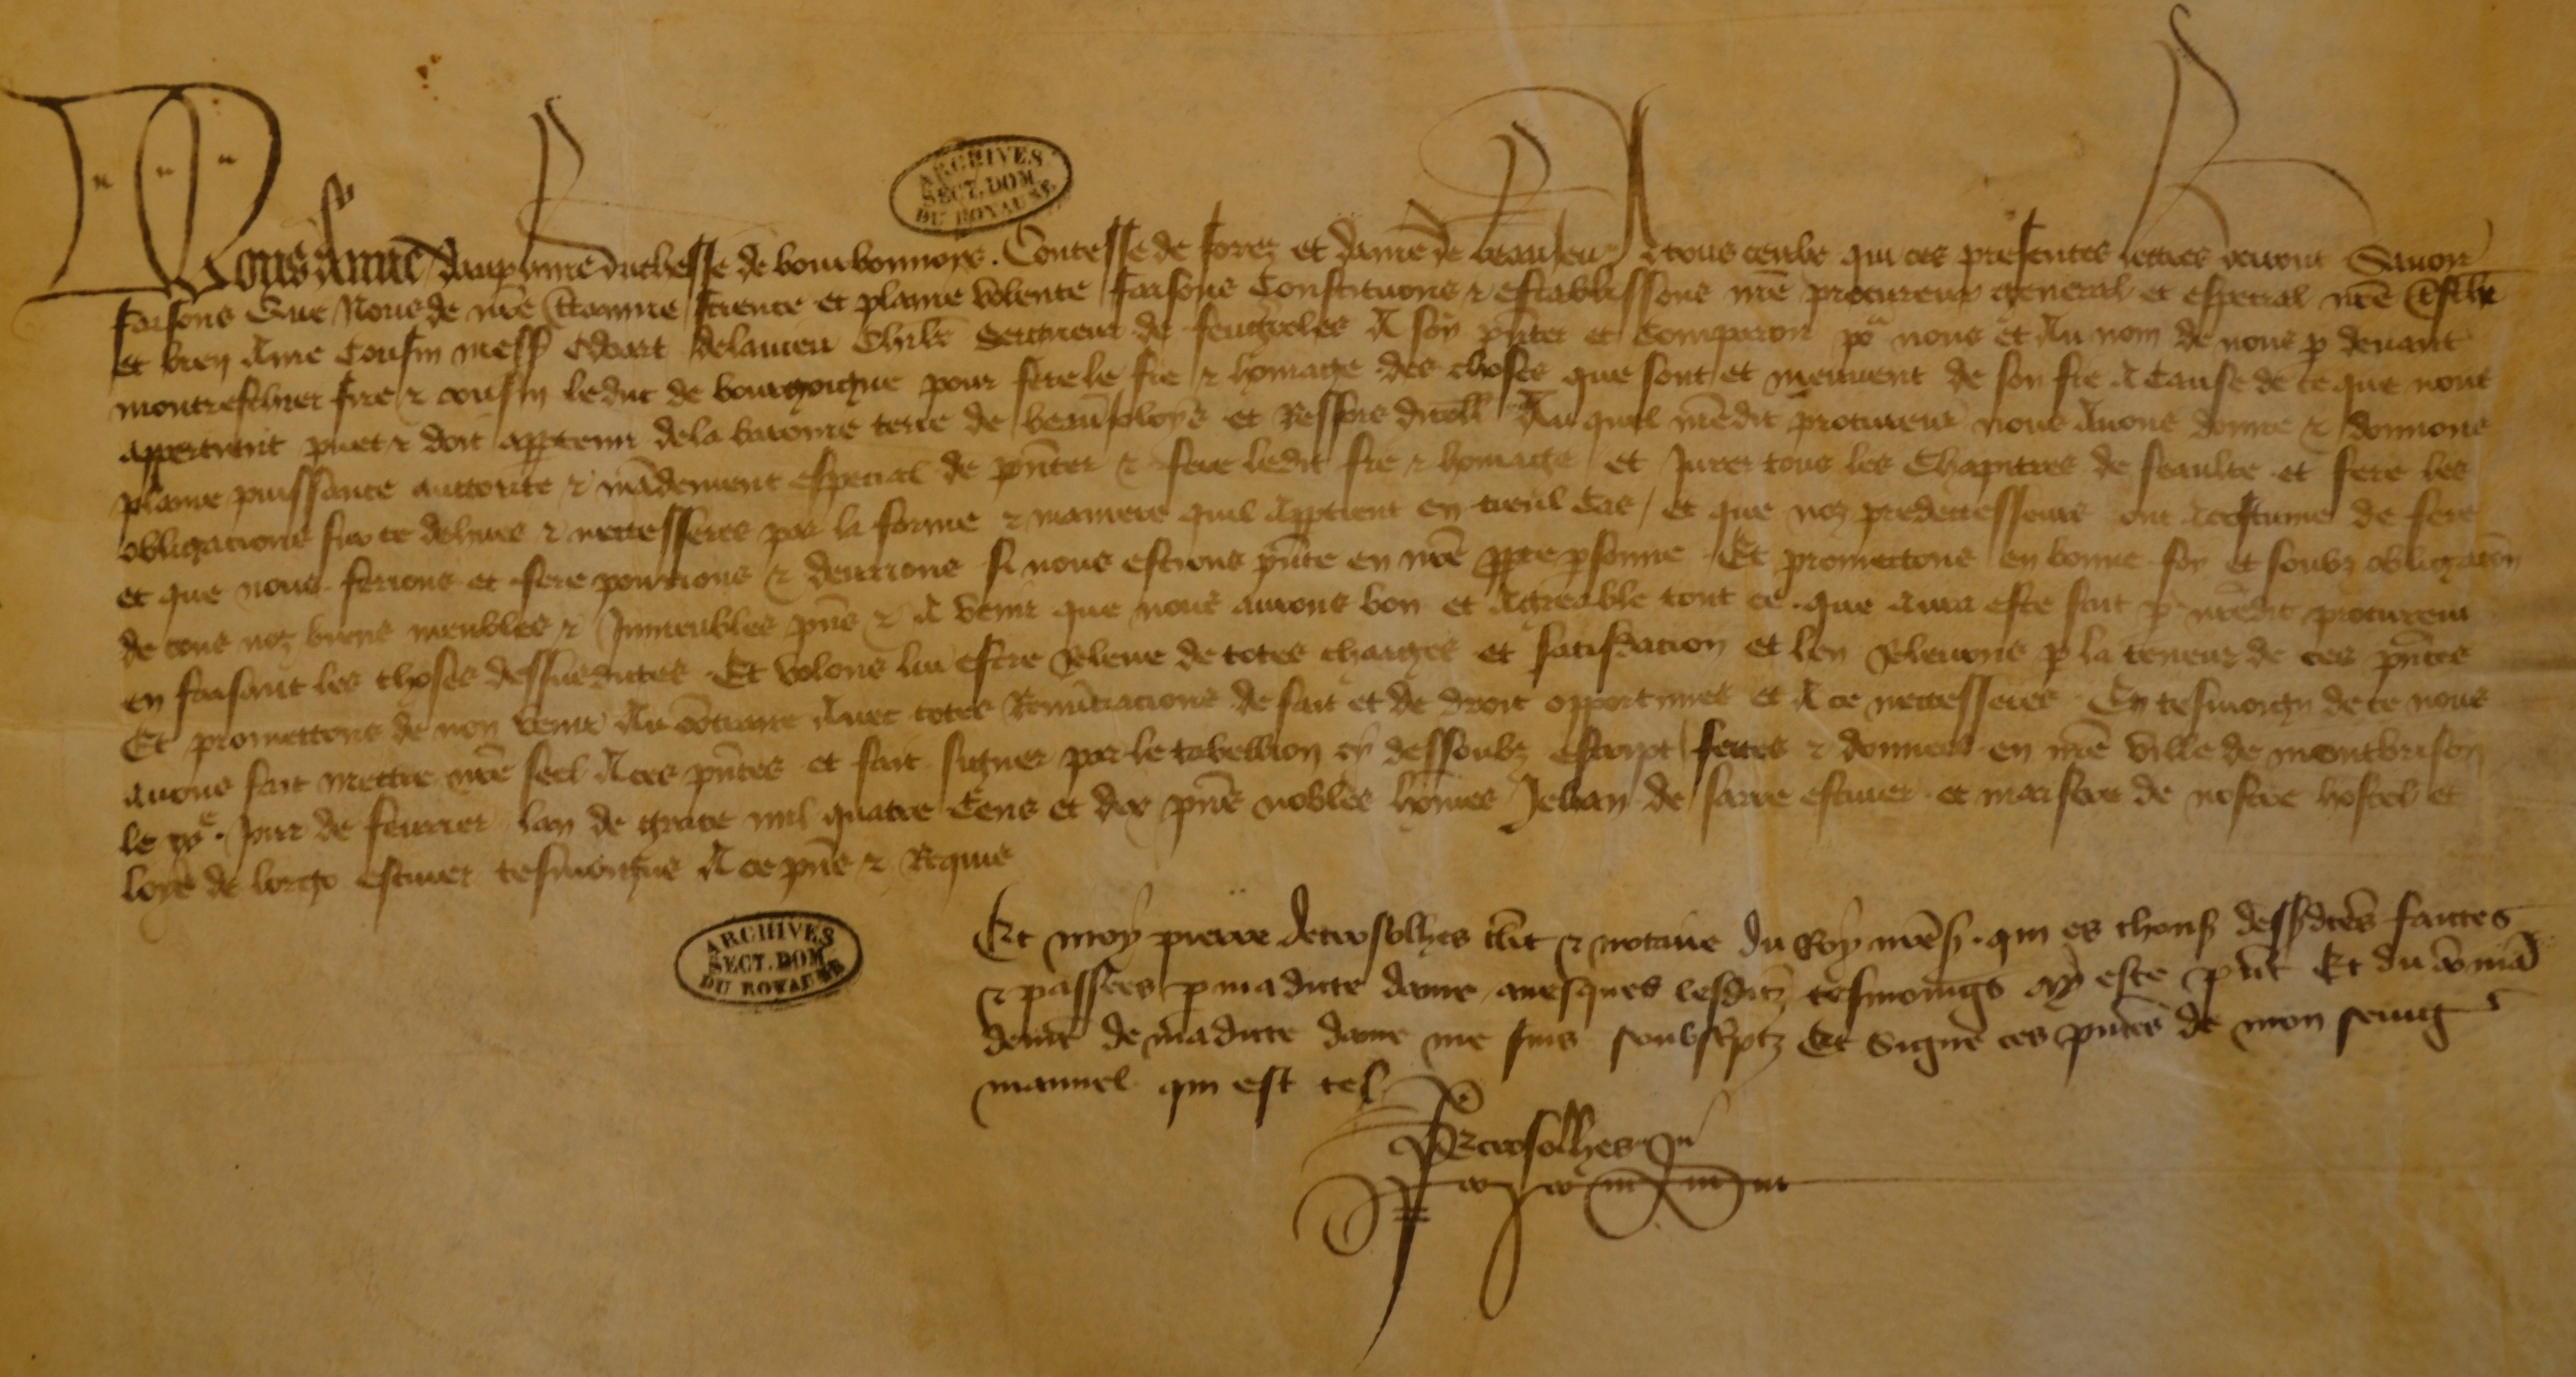 Nous Anne dauphine duchesse de bourbonnoys. Contesse de forez et dame de beaujeu A tous ceulx qui ces presentes lettres verront Savoir
ARCHIVES SECT. DOM. DU ROYAUME
faisons Que Nous de nre certainne science et plaine volente faisons Constituons & establissons nre procureur general et especial nre chier
et bien Ame Cousin mess Edoart delavieu Chlr seigneur de feugeroles A soy pnter et Comparoir po nous et Au nom de nous p devant
montreschier frere & cousin le duc de bourgoigne pour fere le fie & homage des choses que sont et meuvent de son fie A Cause de ce que nous
appertient puet & doit appteni de la baronie terre de beaujeloys et Ressors dicell Au quel nredit procureur nous Avons donne & donnons
plaine puissance auttorite & madement especial de pnter & fere ledit fie & homage et Jurer tous les Chapitres de feaulte et fere les
obligacions sur ce dehues & neccesseres par la forme & maniere quil Apptient en tieul Cas / et que noz predecesseurs ont Acostume de fere
et que nous ferions et fere pourrions & devrions si nous estions pnte en nre ppre psonne Et promettons en bonne foy et soubz obligacon
de tous noz biens meubles & Jmmeubles pns & A venir que nous aurons bon et Agreable tout ce que aura este fait p nredit procureur
en faisant les choses dessusdictes Et volons lui estre Releve de totes charges et satisdacion et len Relevons p la teneur de ces pntes
Et promettons de non venir Au contraire Avec totes Renunciacions de fait et de droit opportunes et A ce neccesseres En tesmoign de ce nous
avons fait mettre nre seel A ces pntes et fait signer par le tabellion cy dessoubz escript fettes & donnees en nre ville de montbrison
le jour de fevrier lan de grace mil quatre Cens et dix pns nobles homes Jehan de escuier et maistre de nostre hostel et
loys de escuier tesmoigns A ce pns & Requis
ARCHIVES SECT. DOM. DU ROYAUME
Et moy pierre decrosolhes clerc & notaire du Roy nres qui es choses dessdtes faictes
& passees p madicte dame avesques lesditz tesmoings ay este pnt Et du coma
demt de madicte dame me suis soubscptz Et Signe ces pntes de mon seing
manuel qui est tel
P Decrosolhes